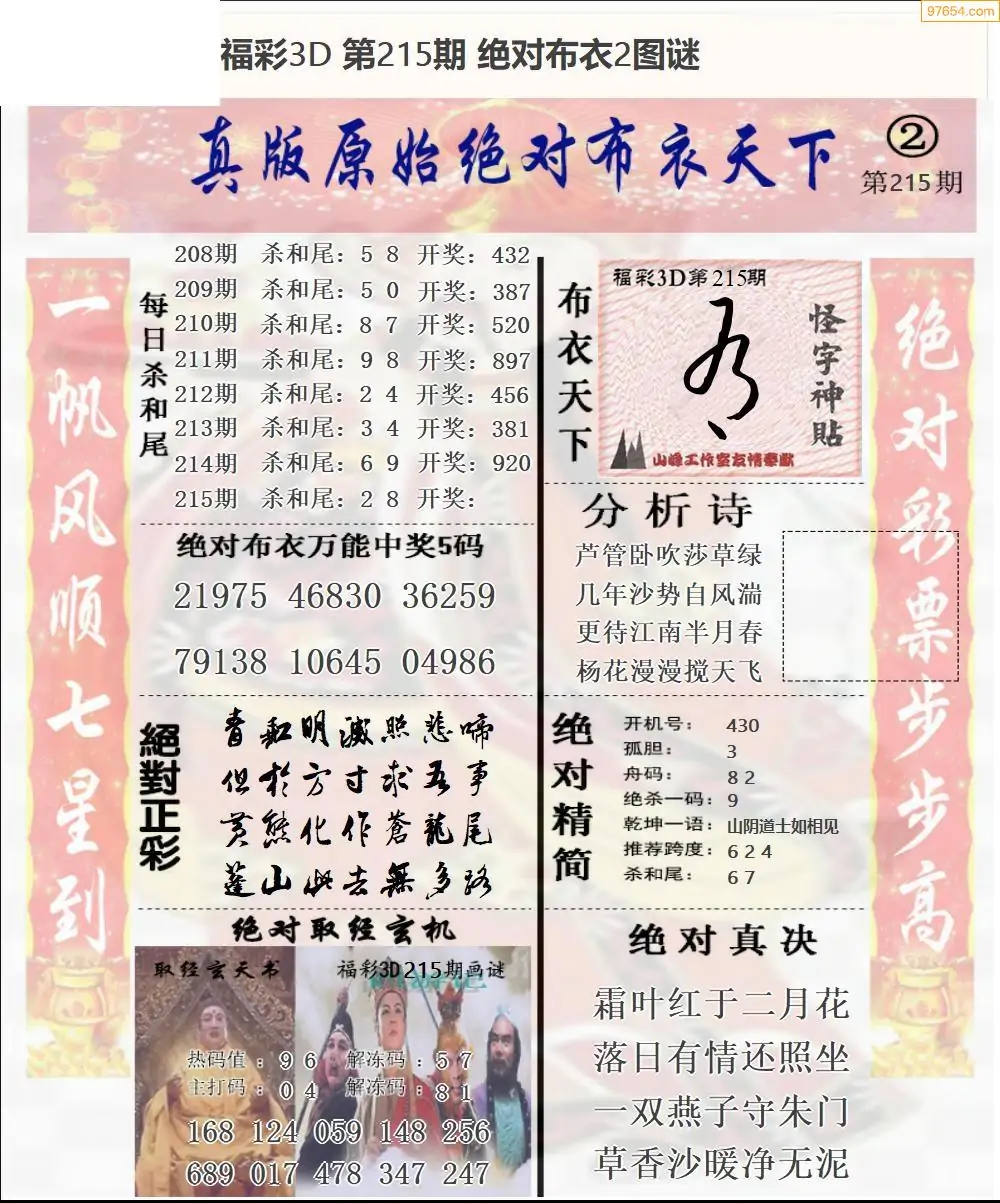 97654.com
福彩3D 第215期 绝对布衣2图谜
真版原始绝对布衣天下
②
第215期
一帆风顺七星到
每日杀和尾
208期 杀和尾：5 8 开奖：432
209期 杀和尾：5 0 开奖：387
210期 杀和尾：8 7 开奖：520
211期 杀和尾：9 8 开奖：897
212期 杀和尾：2 4 开奖：456
213期 杀和尾：3 4 开奖：381
214期 杀和尾：6 9 开奖：920
215期 杀和尾：2 8 开奖：
绝对布衣万能中奖5码
21975 46830 36259
79138 10645 04986
絕對正彩
青虹明滅照悲啼
但於方寸求吾事
黄熊化作蒼龍尾
蓬山此去無多路
绝对取经玄机
取经玄天书
福彩3D215期画谜
热码值：9 6 解冻码：5 7
主打码：0 4 解冻码：8 1
168 124 059 148 256
689 017 478 347 247
布衣天下
福彩3D第215期
怪字神貼
山峰工作室友情奉献
分析诗
芦管卧吹莎草绿
几年沙势自风湍
更待江南半月春
杨花漫漫搅天飞
绝对精简
开机号： 430
孤胆： 3
舟码： 8 2
绝杀一码：9
乾坤一语：山阴道士如相见
推荐跨度：6 2 4
杀和尾： 6 7
绝对真决
霜叶红于二月花
落日有情还照坐
一双燕子守朱门
草香沙暖净无泥
绝对彩票步步高